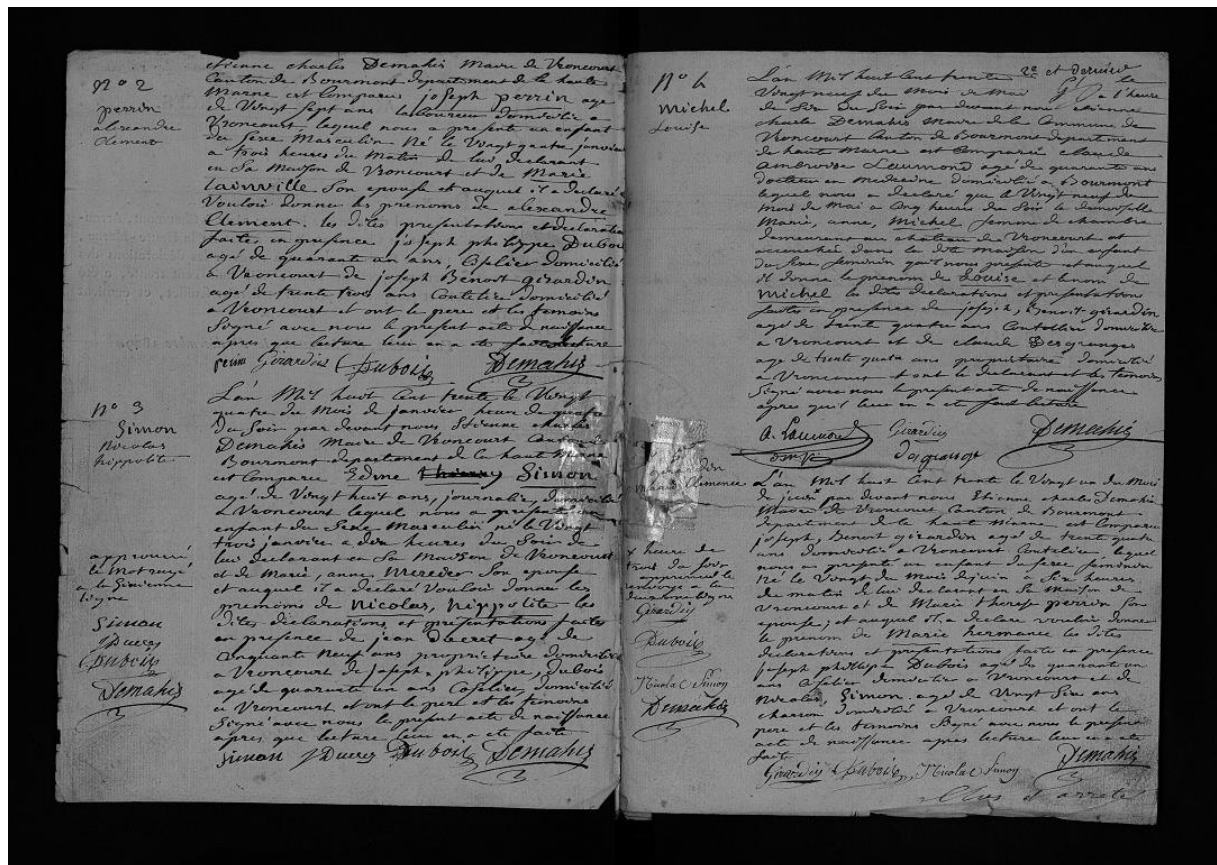 etienne charles Demahis Maire de Vroncourt
Canton de Bourmont departement de la haute
Marne est Comparu joseph perrin agé
de Vingt Sept ans laboureur domicilié a
Vroncourt, lequel nous a presente un enfant
du sexe Masculin Né le Vingt quatre janvier
a trois heures du Matin de lui declarant
en Sa Maison de Vroncourt et de Marie
lainville Son epouse et auquel il a declaré
Vouloir donner les prenoms de alexandre
Clement. les dites presentations et declaration
faites en presence joseph philippe Dubois
agé de quarante un ans, domicilié
a Vroncourt de joseph Benoit girardin
agé de trente trois ans Coutelier domicilié
a Vroncourt et ont le pere et les temoins
Signé avec nous le present acte de naissance
apres que lecture leur en a ete
Girardin Dubois Demahis
N° 2
perrin
alexandre
Clement
L'an Mil huit Cent trente le Vingt
quatre du Mois de janvier heure de quatre
du Soir par devant nous Etienne charles
Demahis Maire de Vroncourt Canton de
Bourmont departement de la haute Marne
est Comparu Edme Simon
agé de Vingt huit ans, journalier, domicilié
a Vroncourt lequel nous a presente un
enfant du Sexe Masculin né le Vingt
trois janvier a dix heures du Soir de
lui declarant en Sa Maison de Vroncourt
et de Marie, anne Son epouse
et auquel il a declaré Vouloir donner les
prenoms de Nicolas, hippolite les
dites declarations et presentations faites
en presence de jean Ducret agé de
Cinquante Neuf ans proprietaire domicilié
a Vroncourt de joseph, philippe, Dubois
agé de quarante un ans domicilié
a Vroncourt et ont le pere et les temoins
Signé avec nous le present acte de naissance
apres que lecture leur en a ete faite
Simon Ducret Dubois Demahis
N° 3
Simon
Nicolas
hippolite
approuvé
le mot rayé
a la Sixieme
ligne
Simon
Ducret
Dubois
Demahis
2e et dernier
L'an Mil huit Cent trente le
Vingt neuf du Mois de Mai a l'heure
de Six du Soir par devant nous etienne
charle Demahis Maire de la Commune de
Vroncourt Canton de Bourmont departement
de haute Marne est Comparu claude
ambroise Laumond agé de quarante ans
docteur en medecine domicilié a Bourmont
lequel nous a declaré que le Vingt neuf du
mois de Mai a Cinq heures du Soir la demoiselle
Marie, anne, Michel femme de chambre
demeurant au chateau de Vroncourt est
accouchée dans la dite maison d'un enfant
du sexe feminin qu'il nous presente et auquel
il donne le prenom de Louise et le nom de
Michel les dites declarations et presentations
faites en presence de joseph, Benoit girardin
agé de trente quatre ans Coutellier domicilié
a Vroncourt et de claude Desgranges
age de trente quatre ans proprietaire domicilié
a Vroncourt et ont le declarant et les temoins
Signé avec nous le present acte de naissance
apres qu'il leur en a ete fait lecture
A. Laumond Girardin Demahis
Desgrange
N° 4
Michel
Louise
L'an Mil huit Cent trente le Vingt un du Mois
de juin par devant nous Etienne charles Demahis
Maire de Vroncourt Canton de Bourmont
departement de la haute Marne est Comparu
joseph, Benoit girardin agé de trente quatre
ans domicilié a Vroncourt Coutelier lequel
nous a presente un enfant du sexe feminin
Né le Vingt du Mois de juin a Six heures
du matin de lui declarant en Sa Maison de
Vroncourt et de Marie therese perrin Son
epouse; et auquel il a declare vouloir donner
le prenom de Marie hermance les dites
declarations et presentations faite en presence
joseph phillippe Dubois agé de quarante un
ans domicilié a Vroncourt et de
Nicolas, Simon agé de Vingt Six ans
charron domicilié a Vroncourt et ont le
pere et les temoins Signé avec nous le present
acte de naissance apres lecture leur en a ete
faite
Girardin Dubois Nicolas Simon Demahis
Clos et arreté
x heure de
trois du soir
approuvé le
renvoye a la
deuxieme ligne
Girardin
Dubois
Nicolas Simon
Demahis